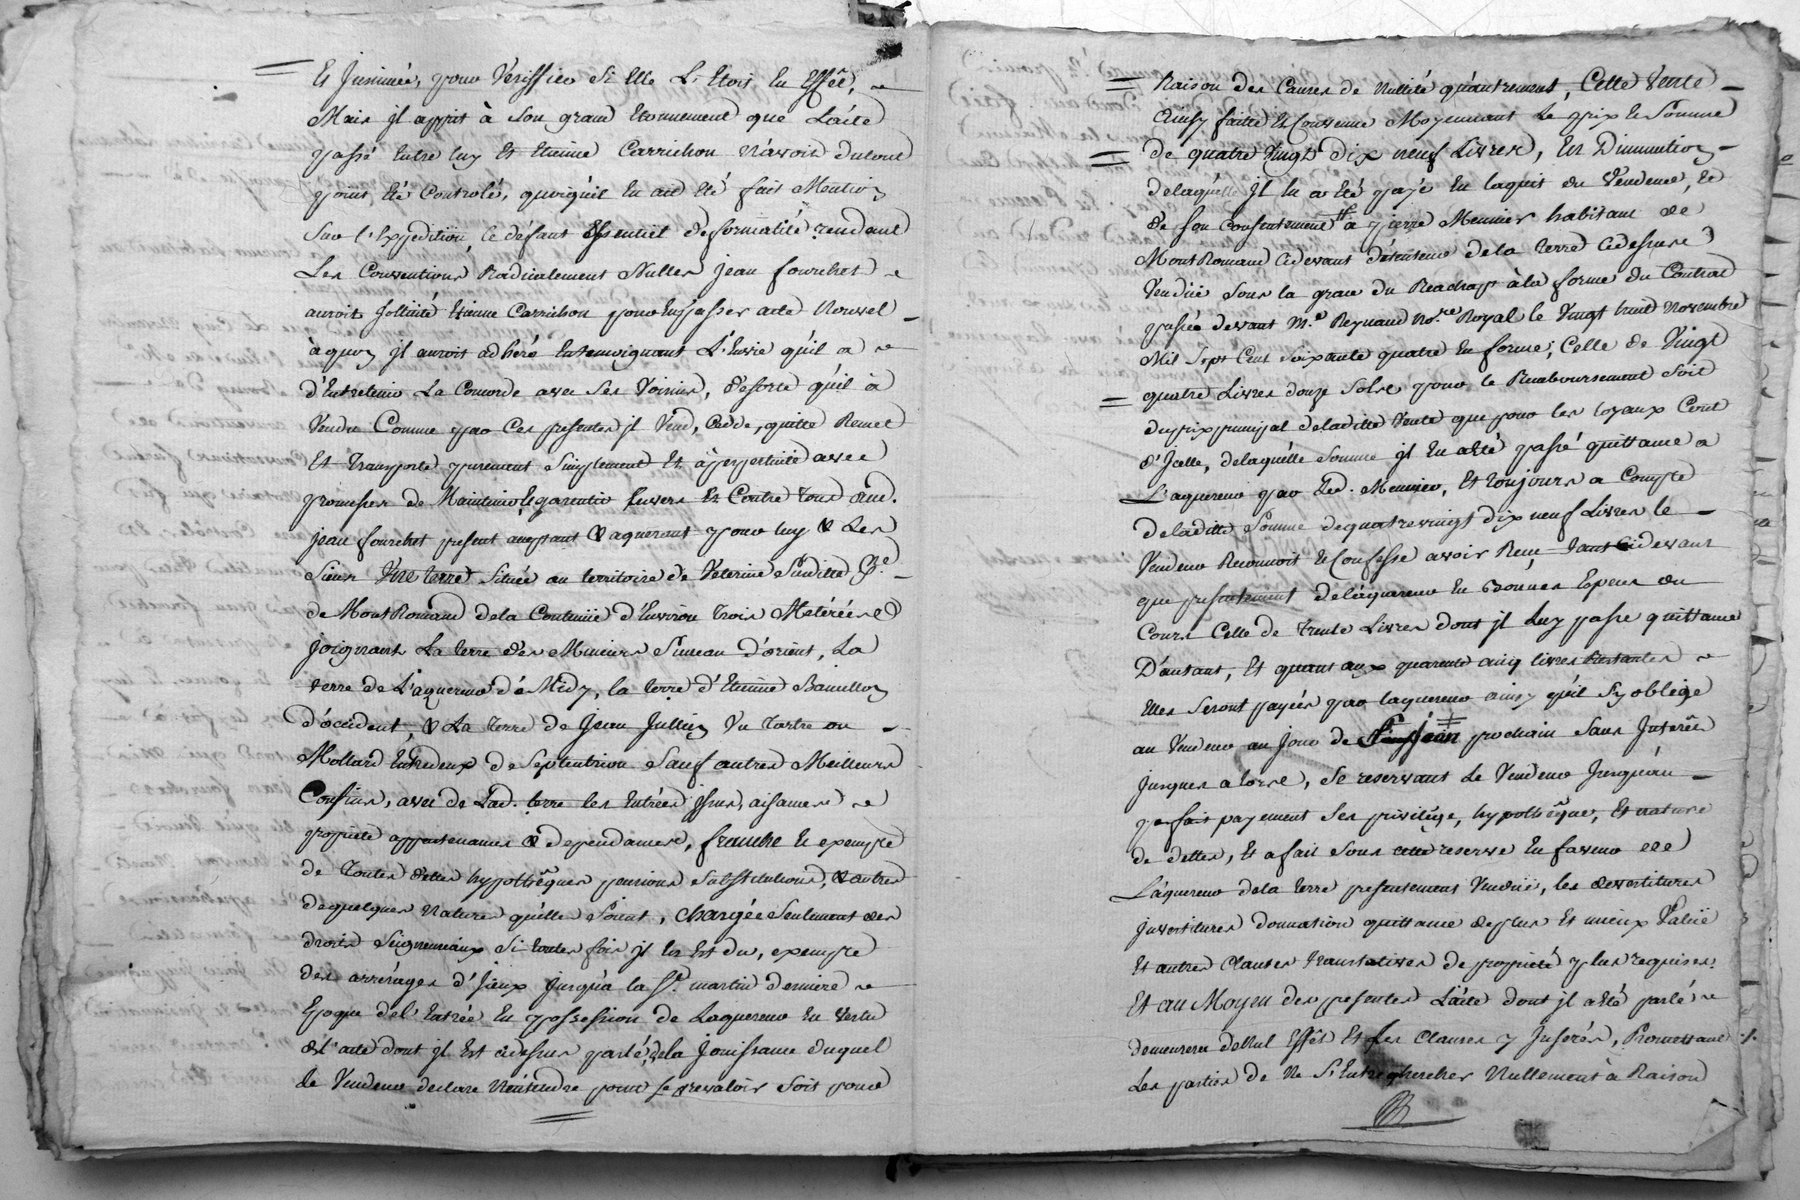 Et Insinuée, pour Vériffier Si Elle L'Etoit En Effêt,
Mais jl apprit à Son grand Etonnement que L'aĉte
passé Entre luy Et Etienne Carrichon N'avoit dutout
point Eté Controlé, quoiqu'il En ait Eté fait Mention
Sur l'Expedition, ce défaut Essentiel de formalité rendant
Les Conventions Radicalement Nulles jean fourchet
auroit Solliĉité Etienne Carrichon pour luy passer acte Nouvel
à quoy jl auroit adhéré En temoignant L'Envie qu'il a
d'Entretenir La Concorde avec Ses Voisins, desorte qu'il à
Vendu Comme par Ces presentes jl Vend, Cédde, quitte Remet
Et transporte purement Simplement Et àperpetuité avec
promesses de Maintenir Et garentir Envers Et Contre tous aud.
jean fourchet present acceptant & aquerant pour luy & Les
Siens Une terre Située au territoire de Veterine Susditte P.se
de MontRomand dela Contenüe d'Environ trois Metérées
joignant La terre des Mineurs Simean d'orient, La
terre de L'aquereur de Midy, la terre d'Etienne Bamillon
d'occident, & La terre de Jean Jullien Un tertre ou
Mollard Entredeux de Septentrion Sauf autres Meilleurs
Confins, avec de Lad. terre les Entrées jssues, aisances
proprieté appartenances & dependances, franche Et exempte
de Toutes dettes hypothêques pensions Substitutions, & autres
dequelques Natures qu'elles Soient, Chargée Seulement des
droits Seigneuriaux Si toutes fois jl En Est du, exempte
des arrérages d'jceux jusqu'à la S.t martin derniere
Epoque de l'Entrée En possession de Laquereur En Vertu
de l'acte dont jl Est cidessus parlé, dela Jouissance duquel
le Vendeur declare N'entendre point Se prevaloir Soit pour
Raison des Causes de Nullité qu'autrement, Cette Vente
ainsy faitte Et Convenue Moyennant Le prix Et Somme
de quatre Vingt dix neuf Livres, En Diminution
delaquelle jl En a Eté payé En l'aquit du Vendeur, Et
de Son Consentement à pierre Meunier habitant de
MontRomand Cidevant détenteur dela terre Cidessus
Vendüe Sous la grace du Reachapt àla forme du Contrat
passé devant M.e Reynaud No.re Royal le Vingt huit Novembre
Mil Sept Cent Soixante quatre En forme, Celle de Vingt
quatre Livres douze Sols pour le Remboursement Soit
du prix principal deladitte Vente que pour les loyaux Cout
d'Jcelle, delaquelle Somme jl En a Eté passé quittance a
L'aquereur par Led. Meunier, Et toujours a Compte
deladitte Somme de quatrevingt dix neuf Livres le
Vendeur Reconnoit Et Confesse avoir Reçu tant Cidevant
que presentement de l'aquereur En Bonnes Especes du
Cours Celle de trente Livres dont jl Luy passe quittance
D'autant, Et quant aux quarente cinq livres Restantes
Elles Seront payées par laquereur ainsy qu'il S'y oblige
au Vendeur au jour de prochain Sans Interêts
jusques alors, Se reservant Le Vendeur Jusqu'au
parfait payement Ses privilége, hypothêque, Et nature
de dettes, Et a fait Sous cette reserve En faveur de
L'aquereur dela terre presentement Vendüe, les devestitures
jnvestitures donnation quittance deplus Et mieux Valüe
Et autres Clauses translatives de proprieté plus requises.
Et au Moyen des presentes L'aĉte dont jl a Eté parlé
demeurera deNul Effêt Et Les Clauses y Inserés, Promettant
Les parties de Ne S'Entrechercher Nullement à Raison